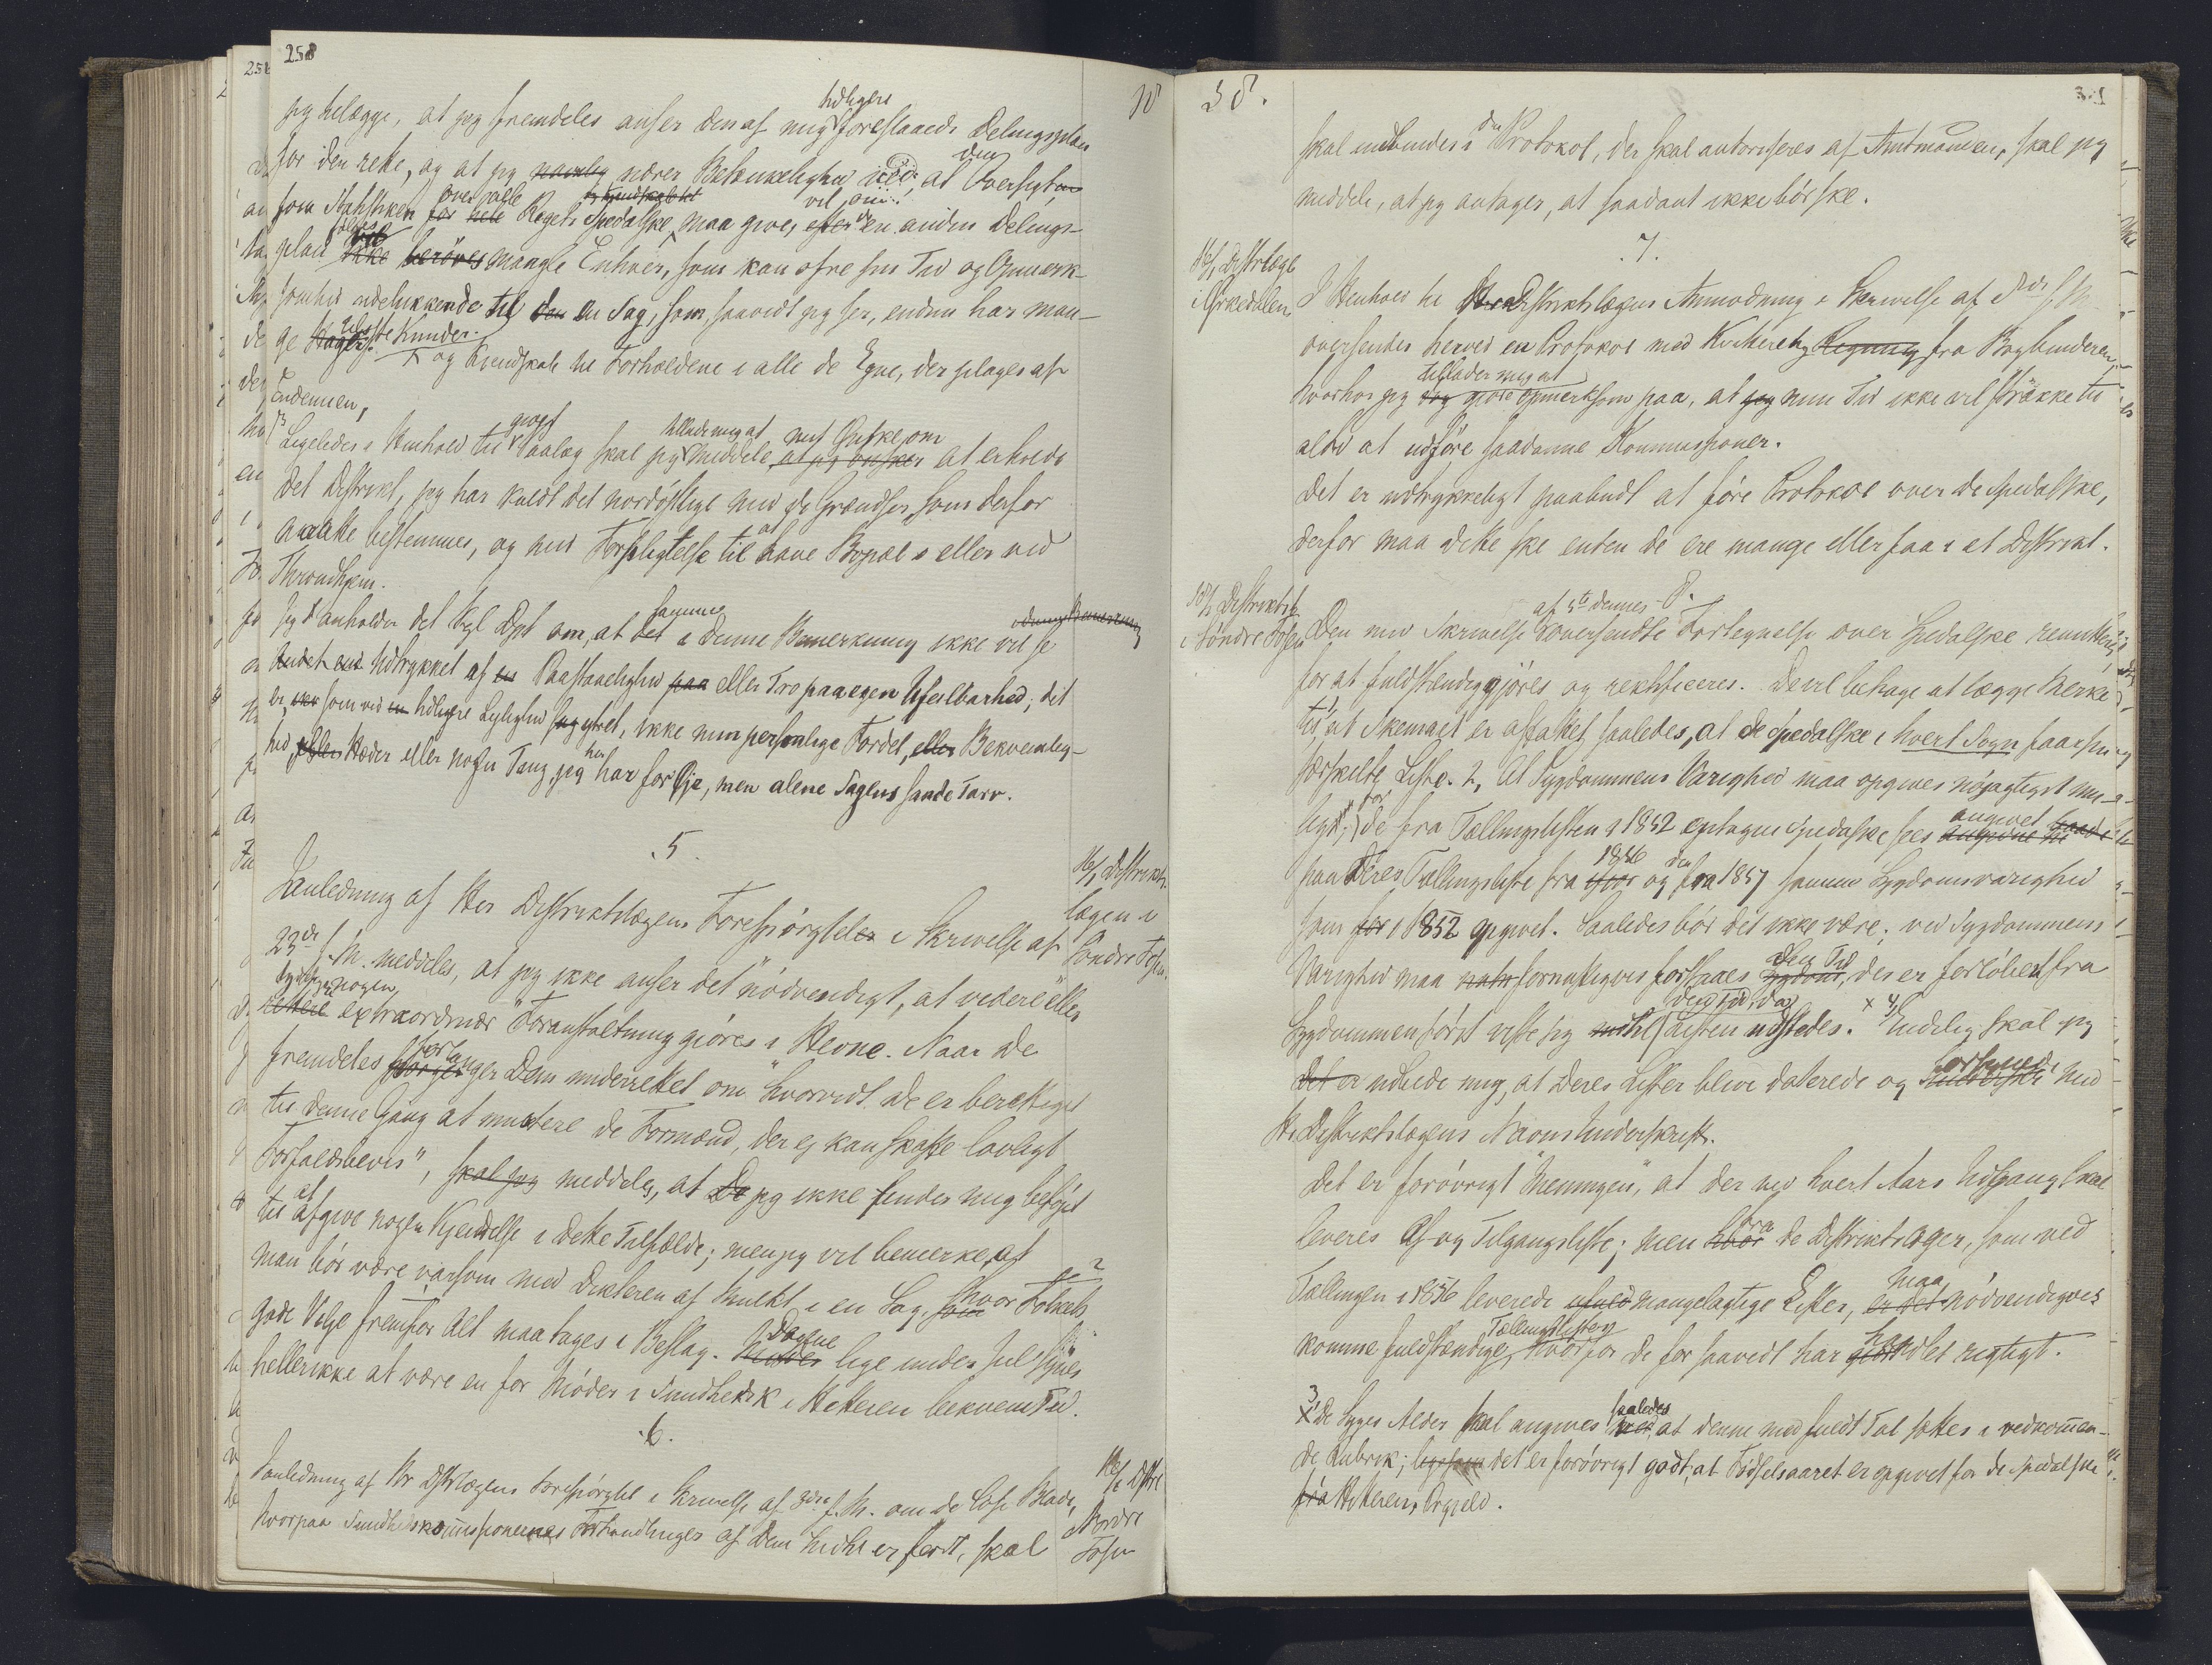 258
18
jeg tilægge, at jeg fremdeles anser den af mig tidligere foreslaaede Delingsplan
for den rette, og at jeg nærer Betænkelighed ved, at den Oversigt
som Statistiken over alle Rigets Spedalske maa give, vil en anden Delings-
plan mangle Enhver, som kan ofre sin Tid og Opmerk-
somhed udelukkende til en Sag, som, saavidt jeg ser, endnu har man-
ge uløste Knuder.
og Kundskab til Forholdene i alle de Egne, der plages af
Endemien,
Ligeledes i Henhold til gjort Paalæg skal jeg tillade mig at meddele mit Ønske om at erholde
det Distrikt, jeg har kaldt det nordøstlige med de Grændser, som derfor
maatte bestemmes, og med Forpligtelse til at have Bopæl i eller ved
Throndhjem.
Jeg anholder det kgl Dpt om, at samme i denne Bemerkning ikke vil se
Udtrykket af Paastaaelighed eller Tro paa egen Ufeilbarhed; det
er, som ved tidligere Leilighed ytret, ikke min personlige Fordel, Bekvemlig-
hed, Hæder eller nogen Ting, jeg her har for Øje, men alene Sagens sande Tarv.
5.
16/1 Distrikts-
lægen i
Søndre Fosen
I Anledning af Hr Distriktslægens Forespørgsler i Skrivelse af
23de f. M. meddeles, at jeg ikke anser det "nødvendigt, at videre" eller
nogen extraordinær "Foranstaltning gjøres i Hevne. Naar De
fremdeles forlanger Dem underrettet om "hvorvidt De er berettiget
til denne Gang at mulktere de Formænd, der ej kan skaffe lovligt
Forfaldsbevis", meddeles, at jeg ikke finder mig beføjet
til at afgive nogen Kjendelse i dette Tilfælde; men jeg vil bemerke, at
man bør være varsom med Dikteren af Mulkt i en Sag, hvor Folkets
gode Vilje fremfor Alt maa tages i Beslag. Dagene lige under Jul synes
hellerikke at være en for Møder i Sundhedsk i Hitteren bekvem Tid.
6.
16/1 Distrl
i Nordre
Fosen
I Anledning af Hr Distrlægens Forespørgsel i Skrivelse af 3die f. M. om de løse Blade,
hvorpaa Sundhedskommissionernes Forhandlinger af Dem hidtil er ført, skal
58.
skal indbindes i den Protokol, der skal autoriseres af Amtmanden, skal jeg
meddele, at jeg antager, at saadant ikke bør ske.
7.
16/1 Distrlæge
i Ørkedalen
I Henhold til Distriktslægens Anmodning i Skrivelse af
oversendes herved en Protokol med Kvitteret Regning fra Bogbinderen,
hvorhos jeg tillader mig at gjøre opmerksom paa, at min Tid ikke vil strække til
altid at udføre saadanne Kommissioner.
Det er udtrykkeligt paabudt at føre Protokol over de Spedalske,
derfor maa dette ske enten de ere mange eller faa i et Distrikt.
8.
18/1 Distriktsl
i Søndre Fosen
Den med Skrivelse af 5te dennes oversendte Fortegnelse over Spedalske remitteres
for at fuldstændiggjøres og rektificeres. De vil behage at lægge Merke
til, 1, at Skemaet er affattet saaledes, at de Spedalske i hvert Sogn faar sin
særskilte Liste. 2, At Sygdommens Varighed maa opgives nøjagtigst mu-
ligt; for de fra Tællingslisten i 1852 optagne Spedalske sees angivet
paa Deres Tællingsliste fra 1856 og den fra 1857 samme Sygdomsvarighed
som i 1852 opgivet. Saaledes bør det ikke være; ved Sygdommens
Varighed maa fornuftigvis forstaaes den Tid, der er forløben fra
Sygdommen først viste sig til den Tid, da Listen udstedes. x 4, Endelig skal jeg
udbede mig, at Deres Lister blive daterede og forsynede med
Hr Distriktslægens Navns Underskrift.
Det er forøvrigt "Meningen", at der ved hvert Aars Udgang skal
leveres Af- og Tilgangsliste; men fra de Distriktslæger, som ved
Tællingen i 1856 leverede mangelagtige Lister, maa nødvendigvis
komme fuldstændige Tællingslister, hvorfor De for saavidt har handlet rigtigt.
x 3, De Syges Alder skal angives saaledes, at denne med fuldt Tal sættes i vedkommen-
de Rubrik; det er forøvrigt godt, at Fødselsaaret er opgivet for de Spedalske
fra Hitterens Prgjeld.